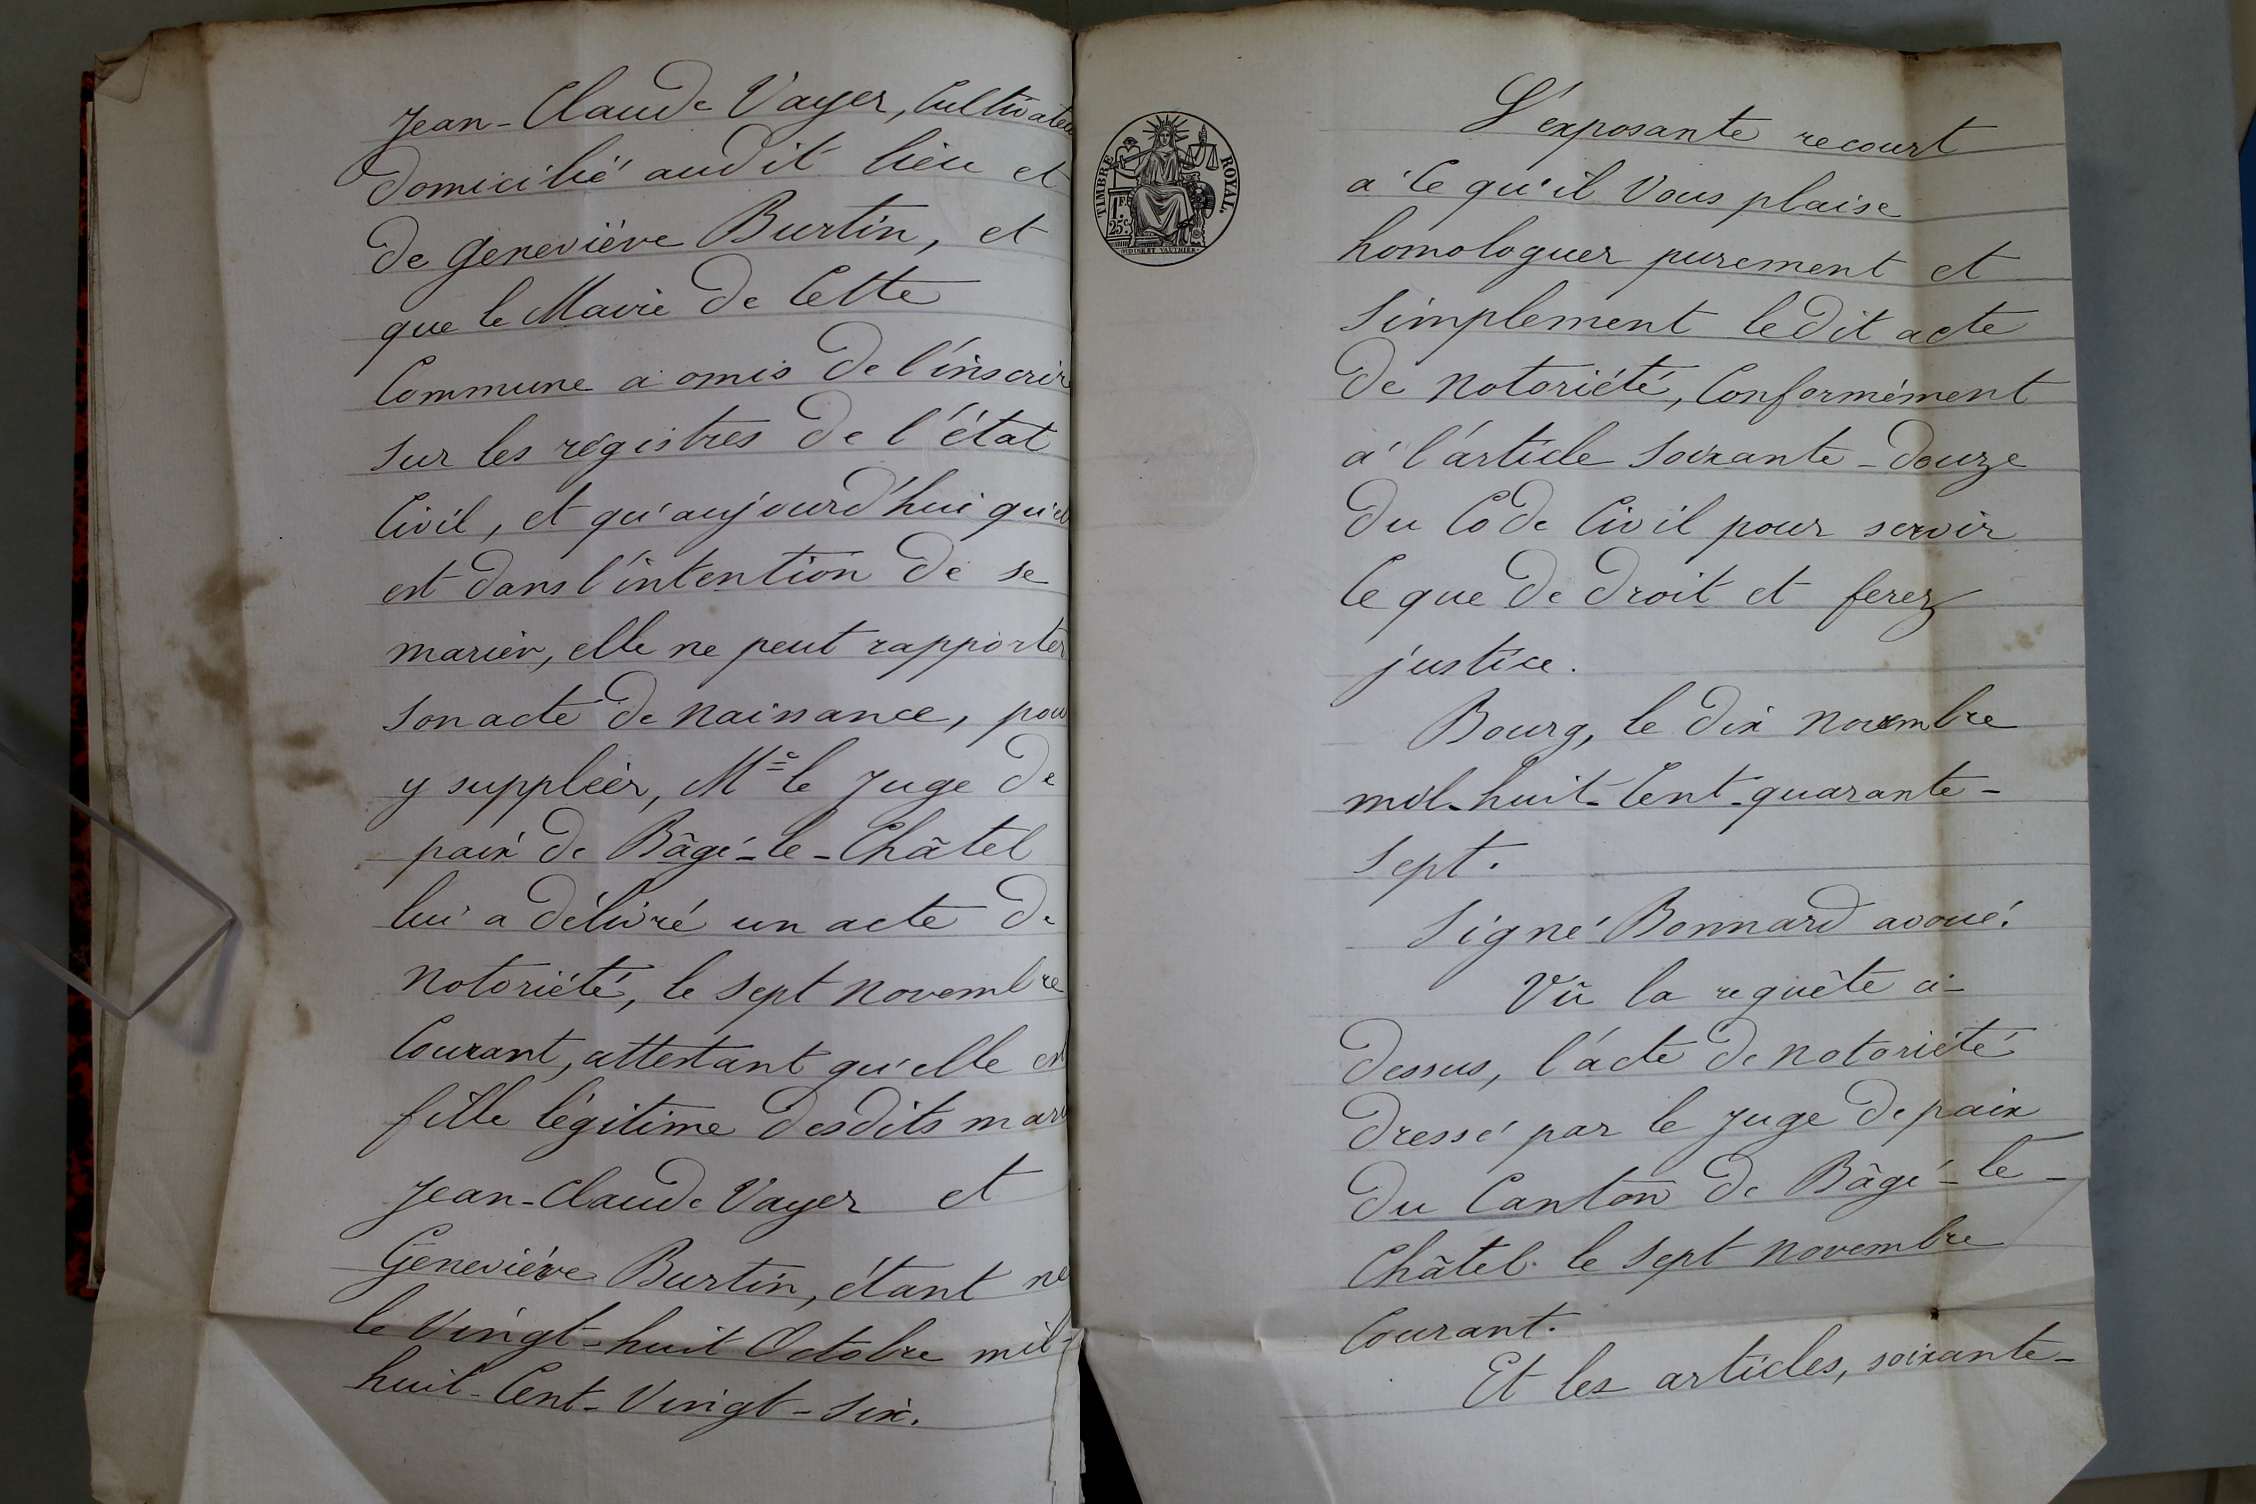 Jean-Claude Vayer, Cultivateu
domicilié audit lieu et
de Geneviève Burtin, et
que le Maire de Cette
Commune a omis de l'inscrir
sur les régistres de l'état
Civil, et qu'aujourd'hui qu'el
est dans l'intention de se
marier, elle ne peut rapporter
son acte de naissance, pou
y suppléer, Mr le Juge de
paix de Bâgé-le-Châtel
lui a délivré un acte de
notoriété, le sept novembre
Courant, attestant qu'elle est
fille légitime desdits mari
Jean-Claude Vayer et
Geneviève Burtin, étant né
le Vingt-huit Octobre mil-
huit-Cent-Vingt-Six.
TIMBRE ROYAL.
1F.
25c.
L'exposante recourt
à Ce qu'il Vous plaise
homologuer purement et
Simplement ledit acte
de notoriété, Conformément
à l'article Soixante-douze
du Code Civil pour servir
Ce que de droit et ferez
justice.
Bourg, le dix novembre
mil-huit-Cent-quarante-
Sept.
Signé Bonnard avoué.
Vû la requête ci-
dessus, l'acte de notoriété
dressé par le Juge de paix
du Canton de Bâgé-le-
Châtel le Sept novembre
Courant.
Et les articles, soixante-